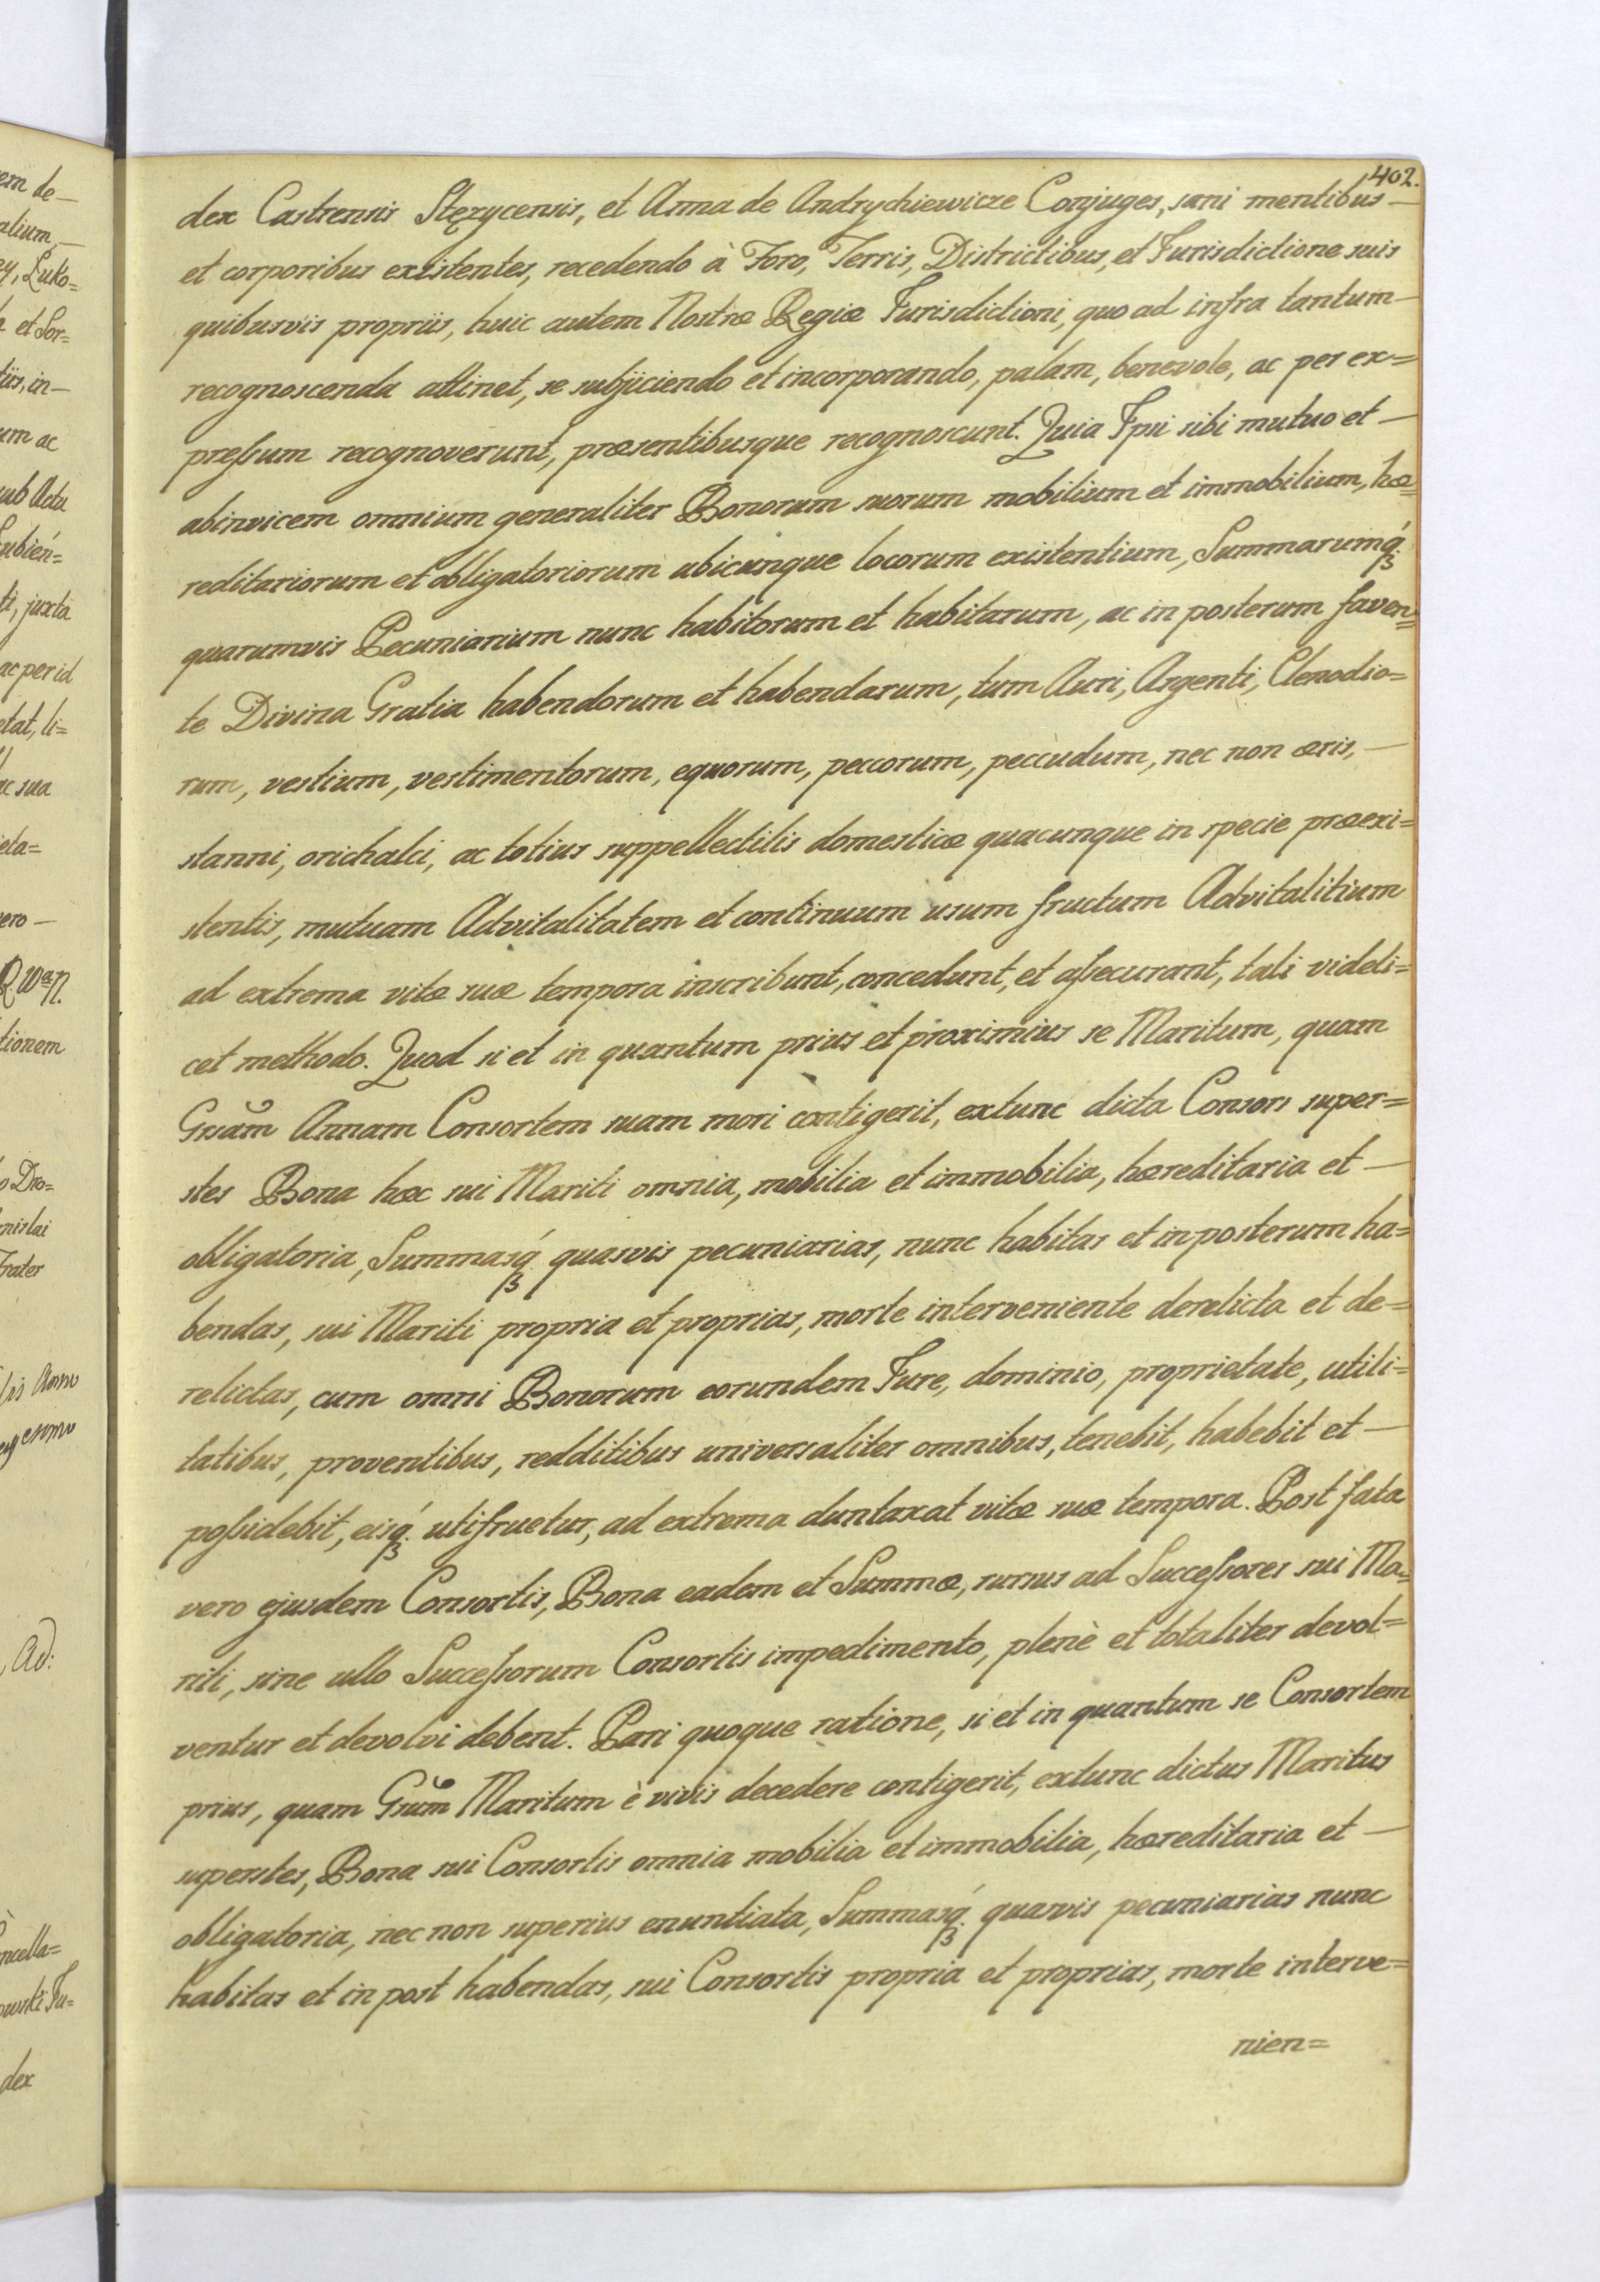 402.
dex Castrensis Stęzycensis, et Anna de Andrychiewicze Conjuges, sani mentibus —
et corporibus existentes, recedendo à Foro, Terris, Districtibus, et Jurisdictione suis
quibusvis propriis, huic autem Nostræ Regiæ Jurisdictioni, quo ad infra tantum —
recognoscenda attinet, se subjiciendo et incorporando, palam, benevole, ac per ex=
preſsum recognoverunt, præsentibusque recognoscunt. Quia Ipsi sibi mutuo et —
abinvicem omnium generaliter Bonorum suorum mobilium et immobilium, hæ=
reditariorum et obligatoriorum ubicunque locorum existentium, Summarumq́ꝫ
quarumvis Pecuniarium nunc habitorum et habitarum, ac in posterum faven=
te Divina Gratia habendorum et habendarum, tum Auri, Argenti, Clenodio=
rum, vestium, vestimentorum, equorum, peccorum, peccudum, nec non æris, —
stanni, orichalci, ac totius suppellectilis domesticæ quacunque in specie præexi=
stentis, mutuam Advitalitatem et continuum usum fructum Advitalitium
ad extrema vitæ suæ tempora inscribunt, concedunt, et aſsecurant, tali videli=
cet methodo. Quod si et in quantum prius et proximius se Maritum, quam
Gsam Annam Consortem suam mori contigerit, extunc dicta Consors super=
stes Bona hæc sui Mariti omnia, mobilia et immobilia, hæreditaria et —
obligatoria, Summasq́ꝫ quasvis pecuniarias, nunc habitas et in posterum ha=
bendas, sui Mariti propria et proprias, morte interveniente derelicta et de=
relictas, cum omni Bonorum eorundem Jure, dominio, proprietate, utili=
tatibus, proventibus, redditibus universaliter omnibus, tenebit, habebit et —
poſsidebit, eisq́ꝫ utifruetur, ad extrema duntaxat vitæ suæ tempora. Post fata
vero ejusdem Consortis, Bona eadem et Summæ, rursus ad Succeſsores sui Ma=
riti, sine ullo Succeſsorum Consortis impedimento, plenè et totaliter devol=
ventur et devolvi debent. Pari quoque ratione, si et in quantum se Consortem
prius, quam Gsum Maritum è vivis decedere contigerit, extunc dictus Maritus
superstes, Bona sui Consortis omnia mobilia et immobilia, hæreditaria et —
obligatoria, nec non superius enuntiata, Summasq́ꝫ quasvis pecuniarias nunc
habitas et in post habendas, sui Consortis propria et proprias, morte interve=
nien=